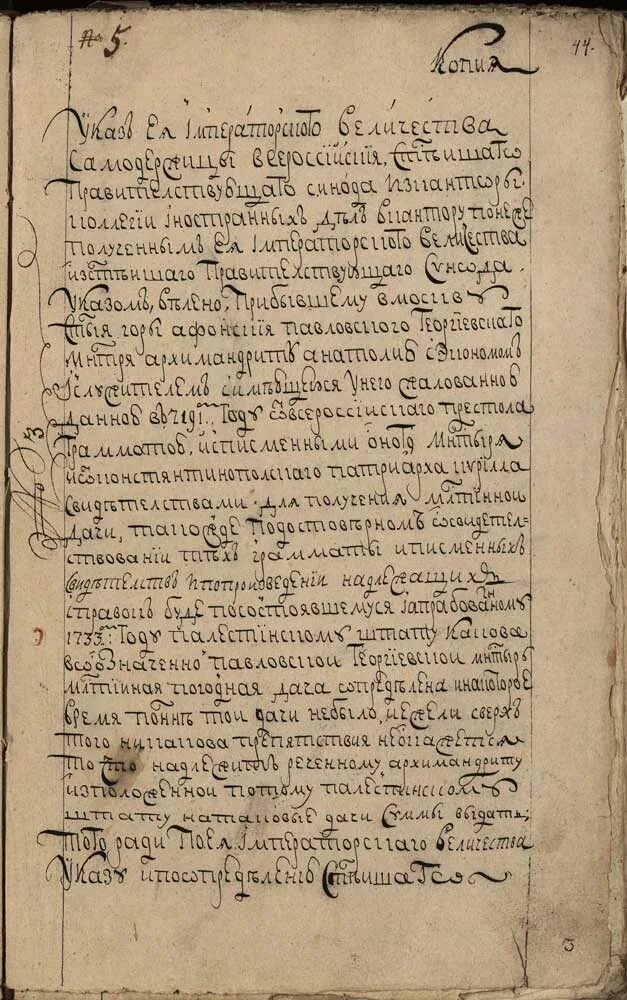 № 5.
44.
Копия
Указъ Ея Императорского величества
Самодержицы всероссииския, Стѣишаго
Правителствующаго синода изканторы
коллегии Иностранныхъ дѣлъ вкантору понеже
полученнымъ Ея Императорского величества
изстѣишаго Правителствующаго Сунода
Указомъ, вѣлено, Прибывшему вмоскву
стыя горы афонския павловского Георгиевскаго
мнтря архимандриту анатолию сЭкономомъ
Ислужителемъ симѣющеюся Унего жалованною
данною въ 7191м Году совсероссиискаго престола
Грамматою, исписменными оного мнтыря
и константинополскаго патриарха кирилла
Свидѣтелствами для получения млтинной
дачи, такожде подостовѣрномъ освидетел-
ствовании тѣхъ грамматы иписменныхъ
Свидѣтелствъ ипопроизведении надлежащихъ
справокъ буде посостоявшемуся Iапробованному
1733м Году палестинскому штату какова
вообозначенной павловской Георгиевской мнтырь
млтинная погодная дача сопредѣлена инакоторое
время поннѣ той дачи небыло, иежели сверхъ
того никакова препятствия неокажется
то что надлежитъ реченному архимандриту
изположенной потому палестинскому
штату натаковые дачи Суммы выдать;
того ради Поея Императорскаго величества
Указу ипосопредѣлению Стѣишаго
3